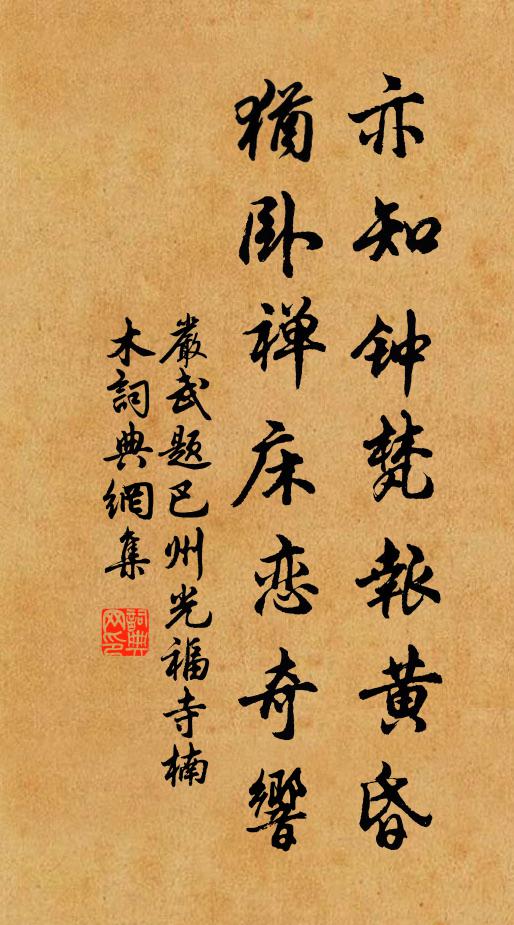 亦知钟梵報黄昏
猶卧禅床恋奇響
嚴武题巴州光福寺楠
木詞典網集
詞典
网印